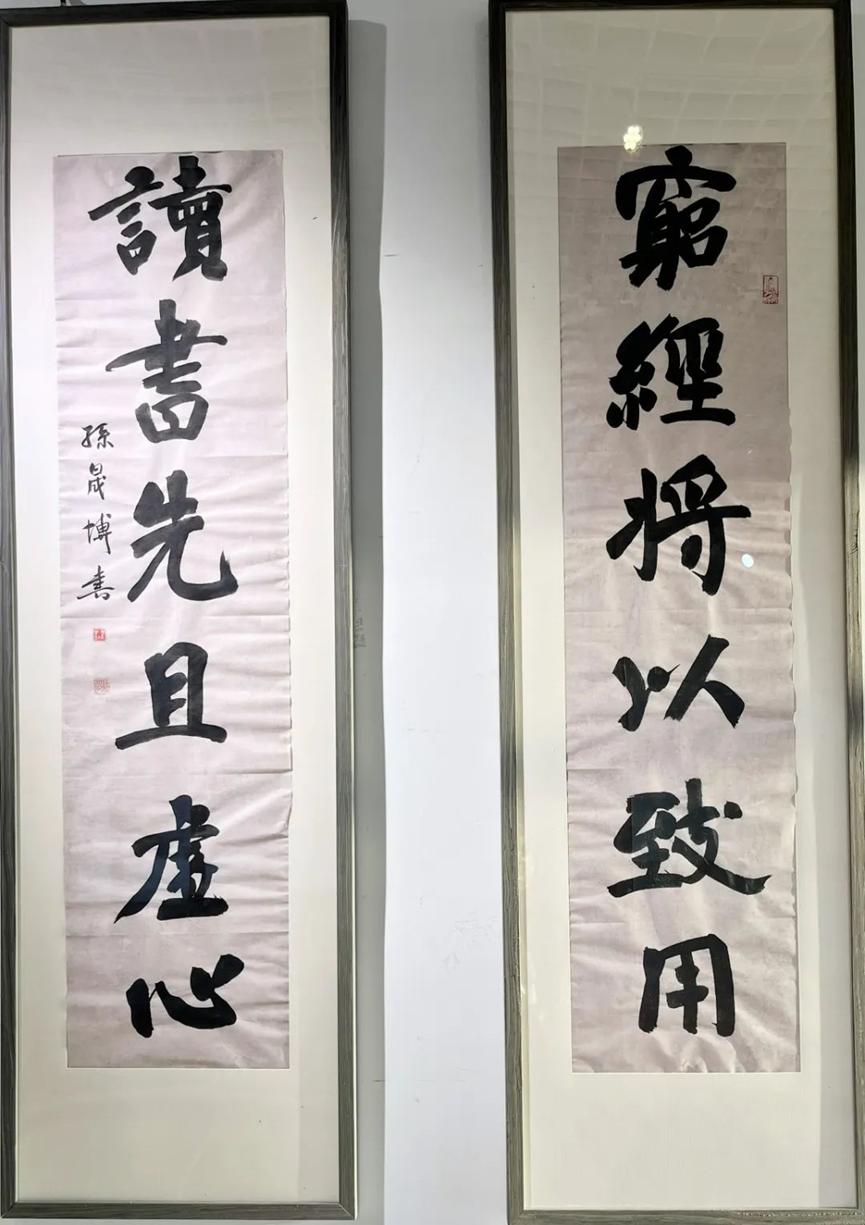 窮經將以致用
讀書先且虛心
孫晟博書